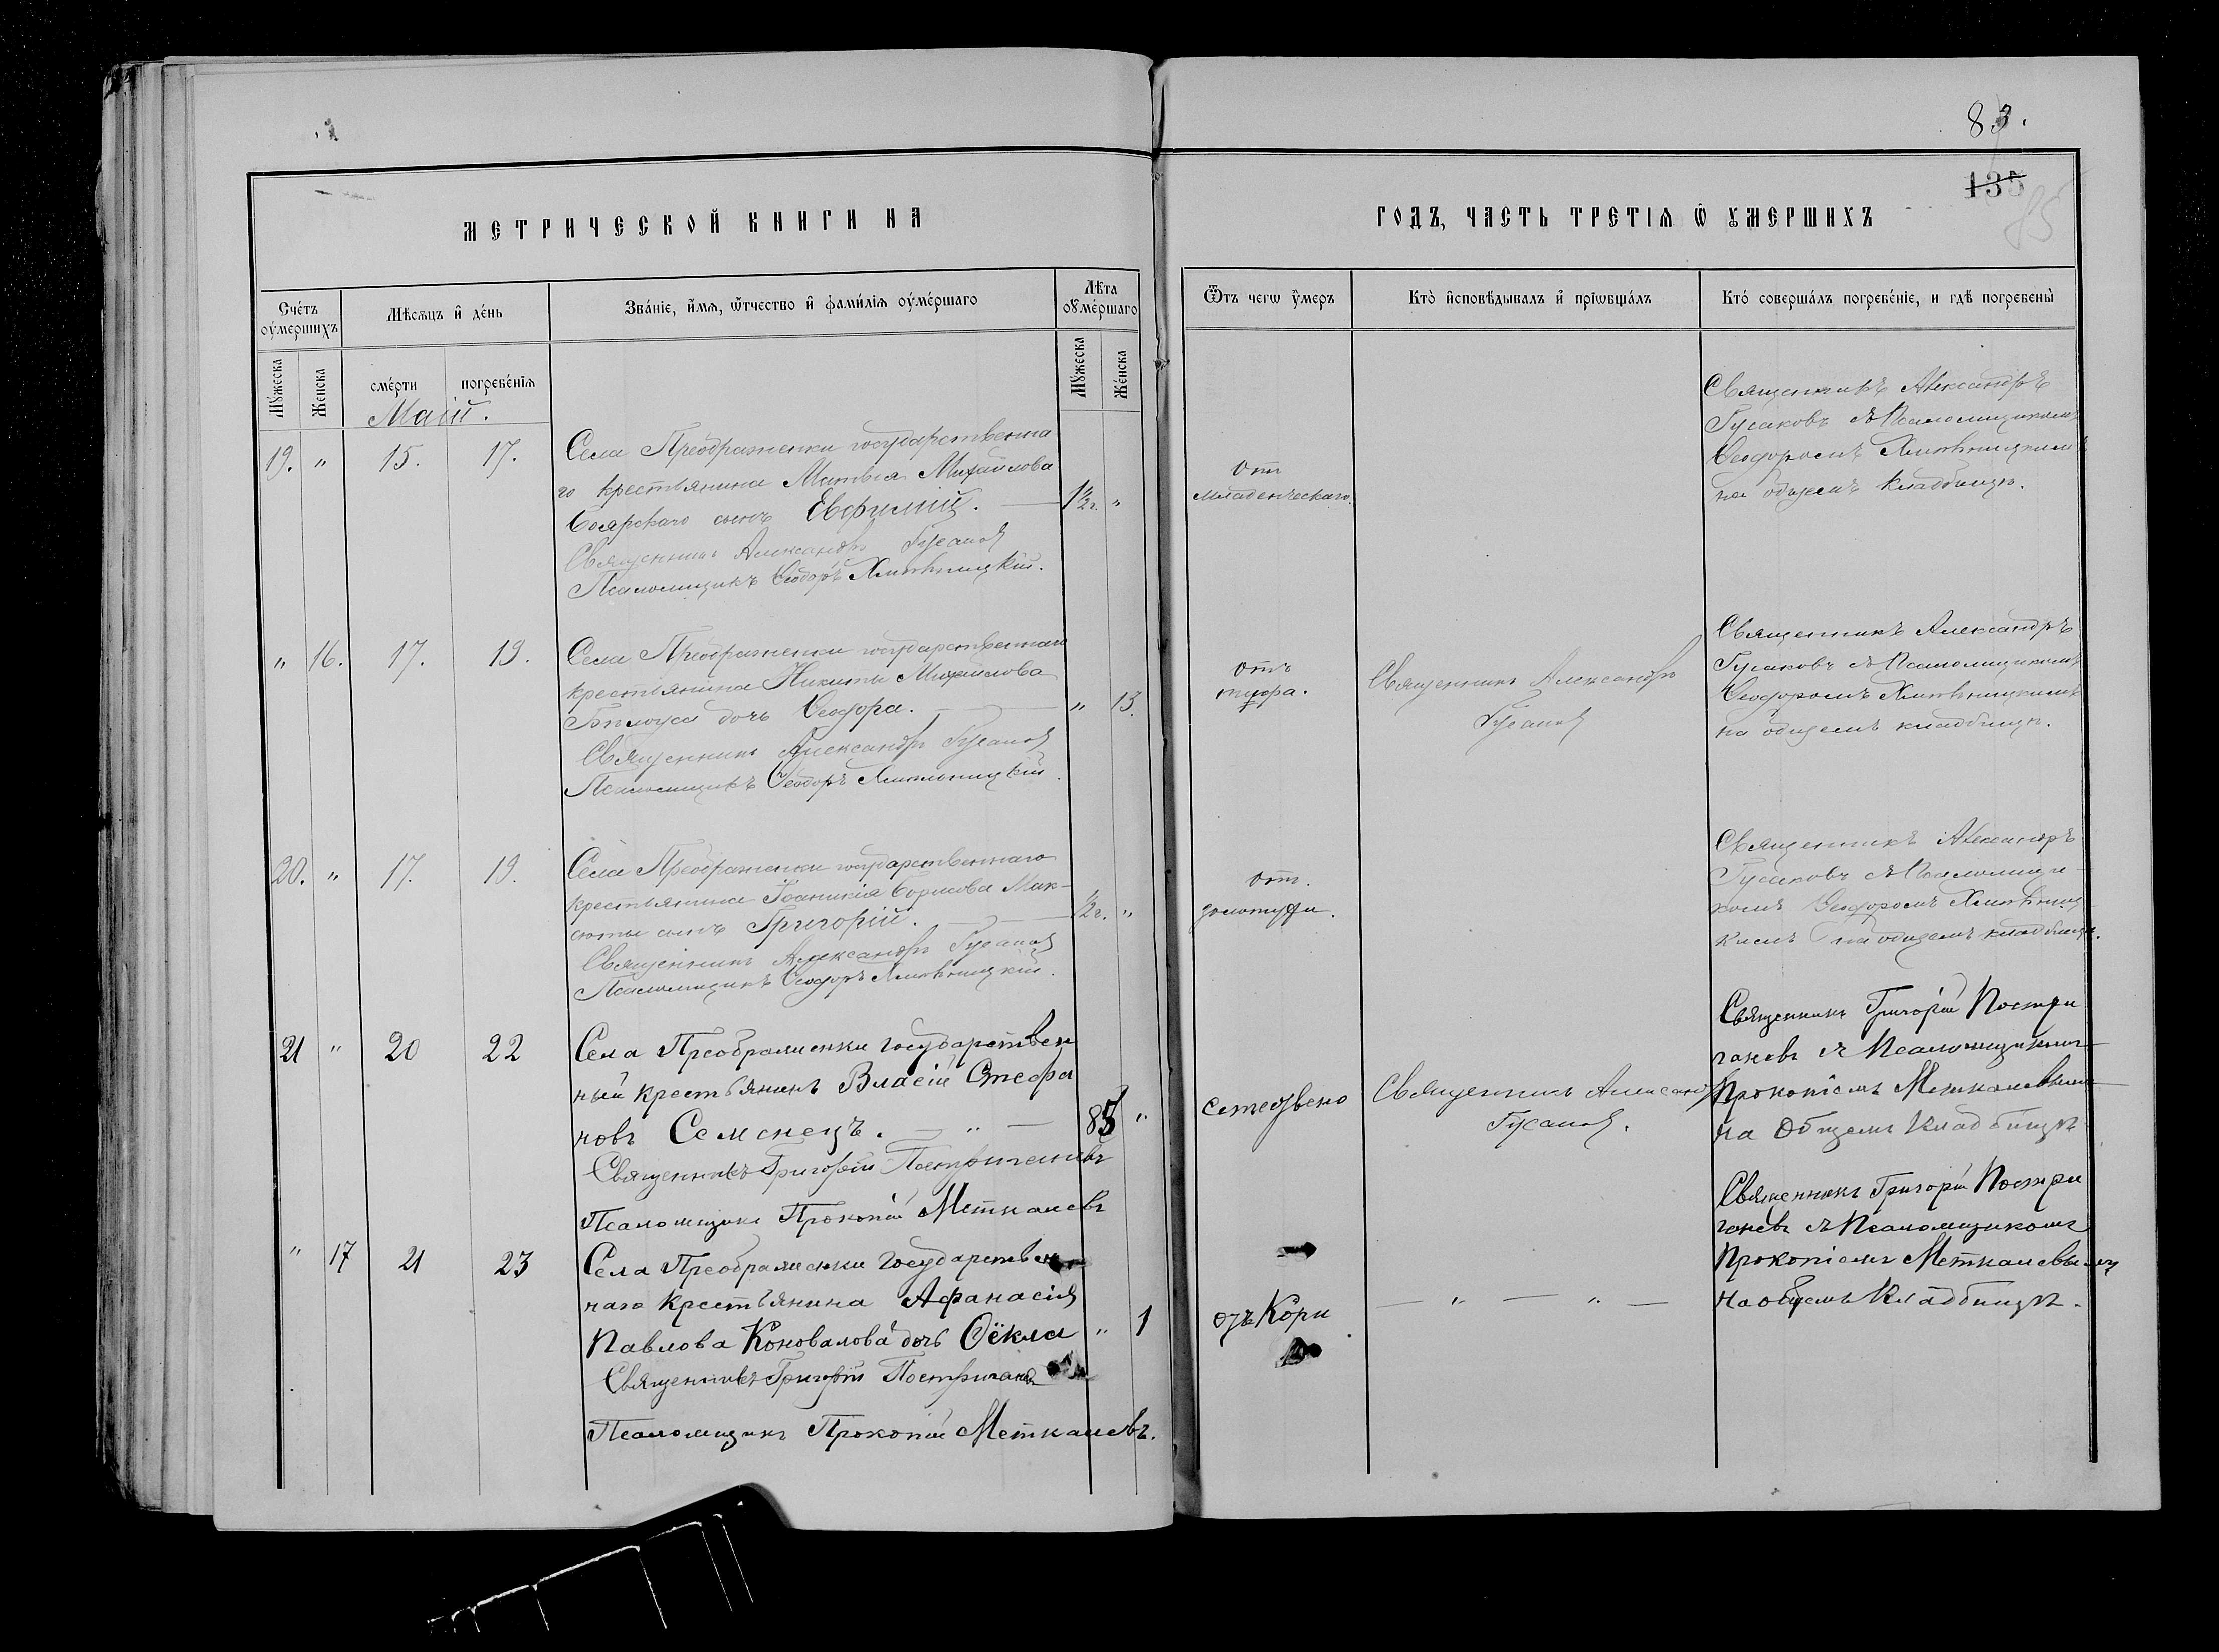 83.
135
85
МЕТРИЧЕСКОЙ КНИГИ НА
ГОДЪ, ЧАСТЬ ТРЕТІѦ Ѿ ОУМЕРШИХЪ
Счетъ оумершихъ
Мѣсѧцъ и день
Званіе, имѧ, ѿтчество и фамиліѧ оумершаго
Лѣта оумершаго
Ѿтъ чегѡ умеръ
Кто исповѣдывалъ и пріѡбщалъ
Кто совершалъ погребеніе, и гдѣ погребены
Мужеска
Женска
смерти
погребеніѧ
Мужеска
Женска
Маій.
19. " 15. 17.
Села Преображенки государственна
го крестьянина Матвѣя Михайлова
Боярскаго сынъ Евфимій. — 1½ г. "
Священникъ Александръ Гусаковъ
Псаломщикъ Ѳеодоръ Хмѣльницкій.
отъ
младенческаго.
Священникъ Александръ
Гусаковъ съ Псаломщикомъ
Ѳеодоромъ Хмѣльницкимъ
на общемъ кладбищѣ.
" 16. 17. 19.
Села Преображенки государственнаго
крестьянина Никиты Михайлова
Бѣлоуса дочь Ѳеодора. — " 13.
Священникъ Александръ Гусаковъ
Псаломщикъ Ѳеодоръ Хмѣльницкій.
отъ
Священникъ Александръ
Гусаковъ
Священникъ Александръ
Гусаковъ съ Псаломщикомъ
Ѳеодоромъ Хмѣльницкимъ
на общемъ кладбищѣ.
20. " 17. 19.
Села Преображенки государственнаго
крестьянина Іоанникія Борисова Мак-
сюты сынъ Григорій. — ½ г. "
Священникъ Александръ Гусаковъ
Псаломщикъ Ѳеодоръ Хмѣльницкій.
отъ.
золотухи.
Священникъ Александръ
Гусаковъ съ Псаломщи-
комъ Ѳеодоромъ Хмѣльниц
кимъ на общемъ кладбищѣ.
21 " 20 22
Села Преображенки государствен
ный крестьянинъ Власій Стефа
новъ Семенецъ. — " — 85 "
Священникъ Григорій Постригановъ
Псаломщикъ Прокопій Меткалевъ
Священникъ Александръ
Гусаковъ.
Священникъ Григорій Постри
гановъ съ Псаломщикомъ
Прокопіемъ Меткалевымъ
на Общемъ Кладбищѣ
" 17 21 23
Села Преображенки государствен
наго Крестьянина Афанасія
Павлова Коновалова дочь Ѳёкла " 1
Священникъ Григорій Постригановъ
Псаломщикъ Прокопій Меткалевъ.
отъ Кори
— " — " —
Священникъ Григорій Постри
гановъ съ Псаломщикомъ
Прокопіемъ Меткалевымъ
на общемъ Кладбищѣ.